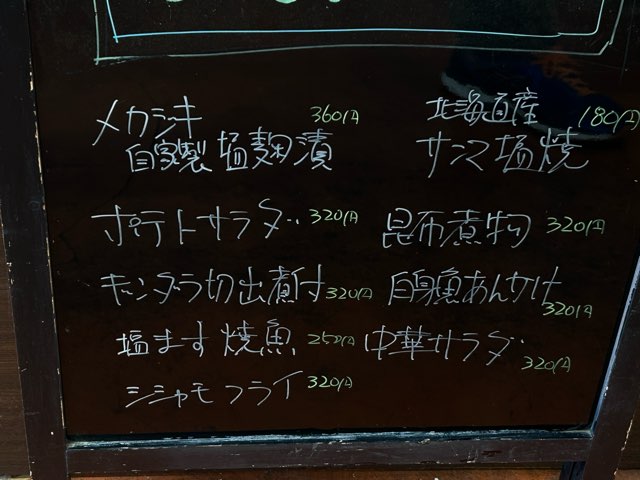 メカジキ 360円
自家製 塩麹漬
北海道産 180円
サンマ塩焼
ポテトサラダ 320円
昆布煮物 320円
ギンダラ切出煮付 320円
白身魚あんかけ 320円
塩ます焼魚 250円
中華サラダ 320円
シシャモフライ 320円